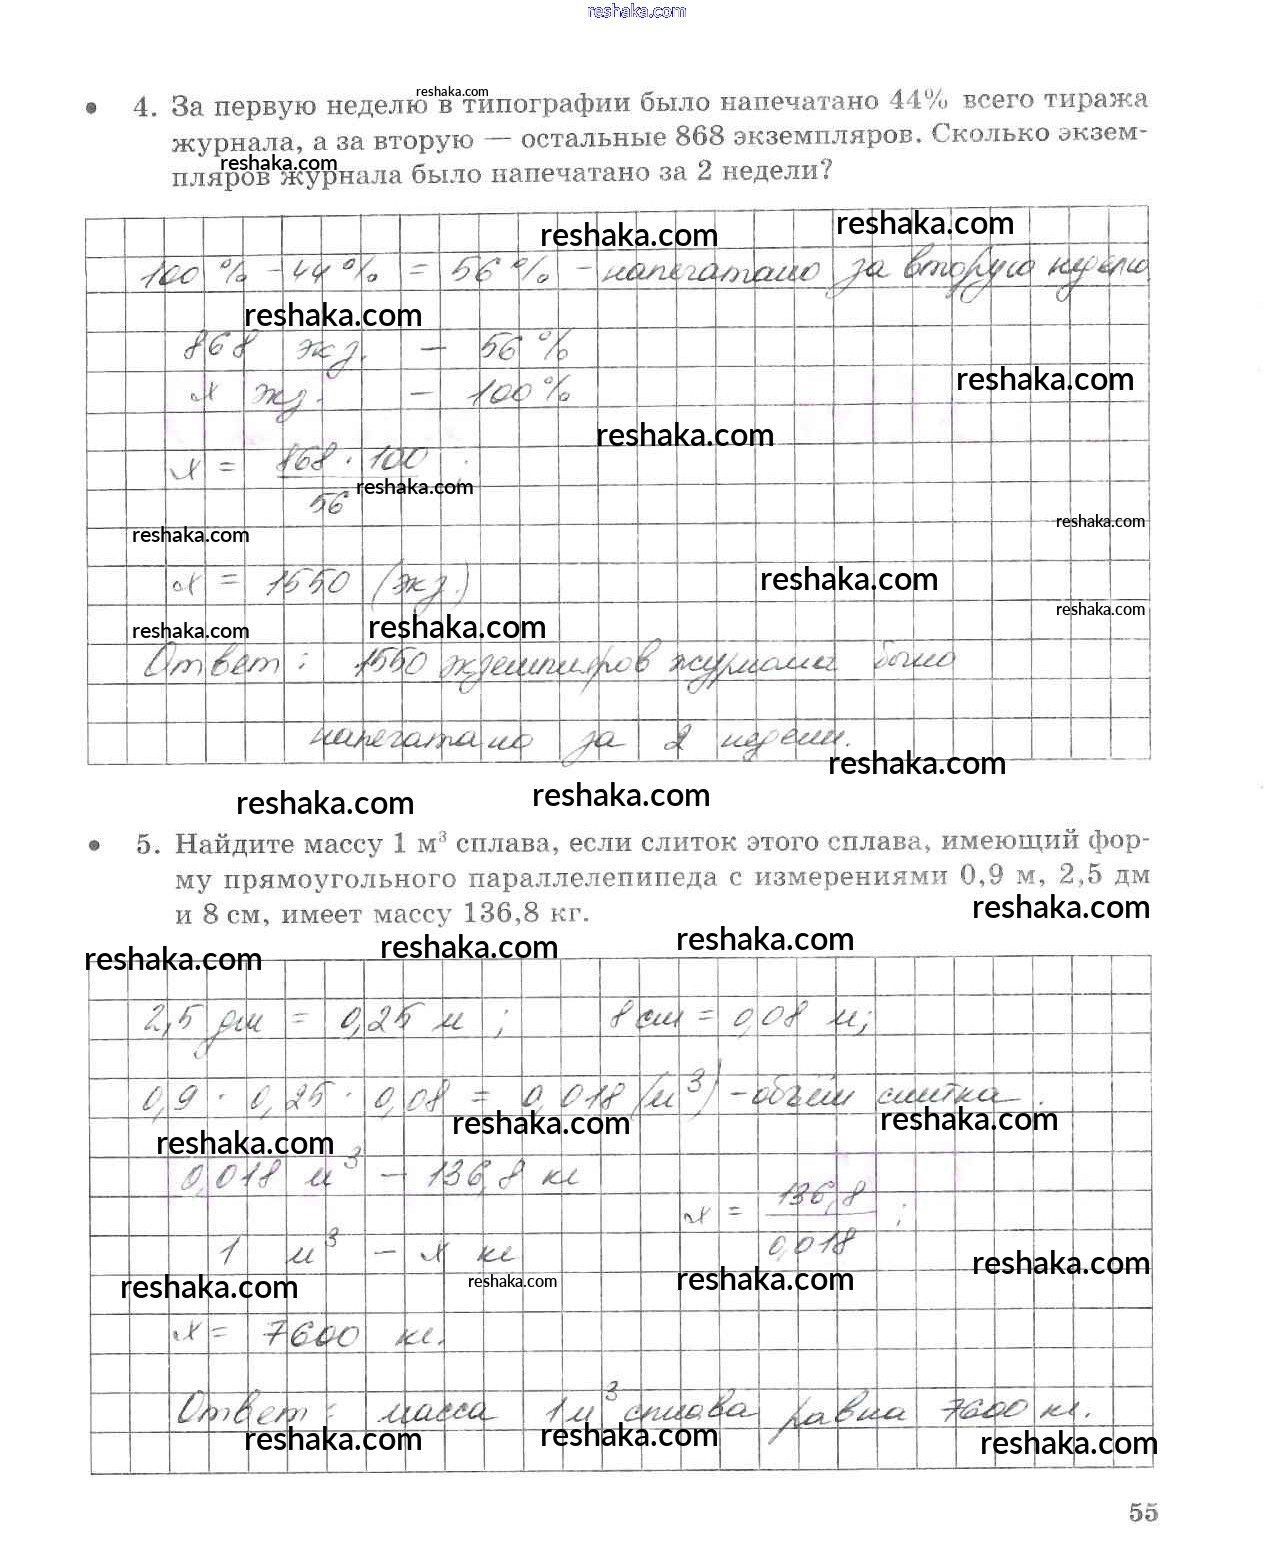 reshaka.com
reshaka.com
4. За первую неделю в типографии было напечатано 44% всего тиража
журнала, а за вторую — остальные 868 экземпляров. Сколько экзем-
reshaka.com
пляров журнала было напечатано за 2 недели?
reshaka.com reshaka.com
100 % - 44 % = 56 % - напечатано за вторую неделю
reshaka.com
868 экз. — 56 %
reshaka.com
x экз. — 100 %
reshaka.com
x = 868 · 100
56 reshaka.com
reshaka.com reshaka.com
x = 1550 (экз.) reshaka.com
reshaka.com
reshaka.com reshaka.com
Ответ: 1550 экземпляров журнала было
напечатано за 2 недели.
reshaka.com
reshaka.com reshaka.com
5. Найдите массу 1 м³ сплава, если слиток этого сплава, имеющий фор-
му прямоугольного параллелепипеда с измерениями 0,9 м, 2,5 дм
и 8 см, имеет массу 136,8 кг.
reshaka.com
reshaka.com reshaka.com reshaka.com
2,5 дм = 0,25 м ; 8 см = 0,08 м;
0,9 · 0,25 · 0,08 = 0,018 (м³) - объём слитка.
reshaka.com reshaka.com reshaka.com
0,018 м³ — 136,8 кг
x = 136,8 ;
0,018
1 м³ — x кг
reshaka.com reshaka.com reshaka.com reshaka.com
x = 7600 кг.
Ответ: масса 1 м³ сплава равна 7600 кг.
reshaka.com reshaka.com reshaka.com
55